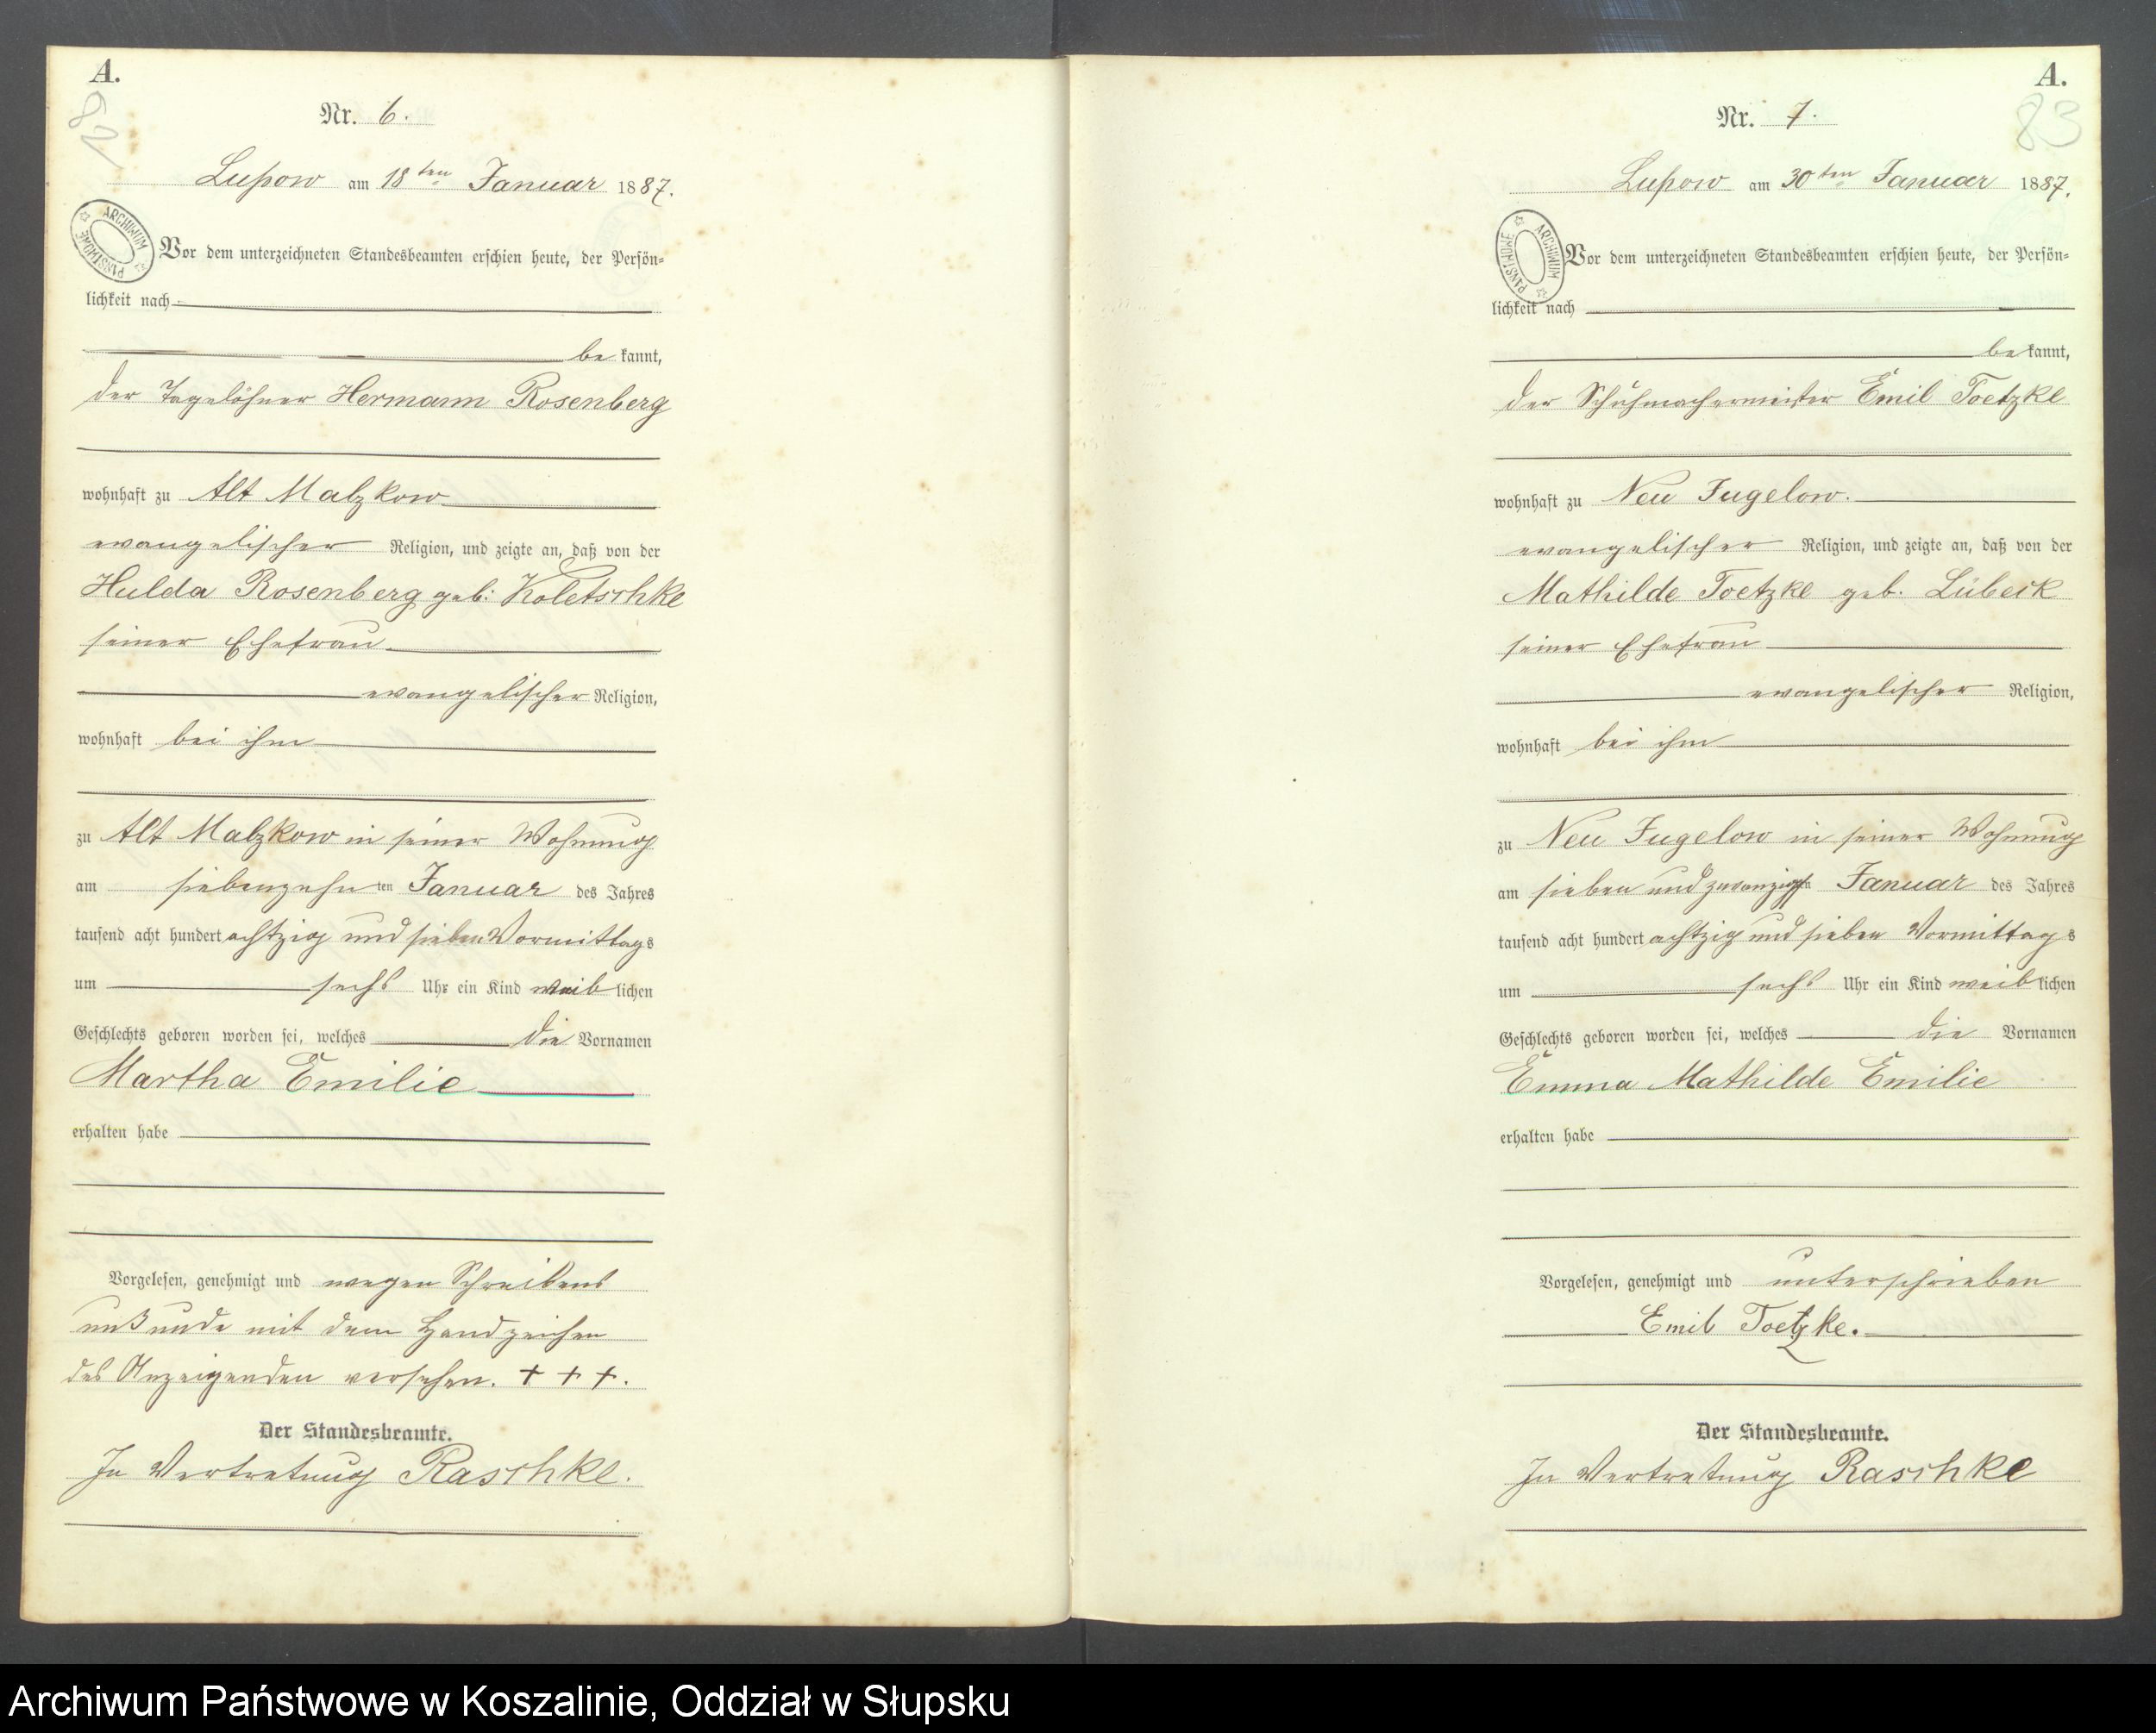 A.
82
Nr. 6.
Lupow am 18ten Januar 1887.
ARCHIWUM PAŃSTWOWE
Vor dem unterzeichneten Standesbeamten erschien heute, der Persön-
lichkeit nach
be kannt,
der Tagelöhner Hermann Rosenberg
wohnhaft zu Alt Malzkow
evangelischer Religion, und zeigte an, daß von der
Hulda Rosenberg geb. Koletschke
seiner Ehefrau
evangelischer Religion,
wohnhaft bei ihm
zu Alt Malzkow in seiner Wohnung
am siebenzehn ten Januar des Jahres
tausend acht hundert achtzig und sieben Vormittags
um sechs Uhr ein Kind weib lichen
Geschlechts geboren worden sei, welches die Vornamen
Martha Emilie
erhalten habe
Vorgelesen, genehmigt und wegen Schreibens
unkunde mit dem Handzeichen
des Anzeigenden versehen. + + +.
Der Standesbeamte.
In Vertretung Raschke.
A.
83
Nr. 7.
Lupow am 30ten Januar 1887.
ARCHIWUM PAŃSTWOWE
Vor dem unterzeichneten Standesbeamten erschien heute, der Persön-
lichkeit nach
be kannt,
der Schuhmachermeister Emil Toetzke
wohnhaft zu Neu Jugelow.
evangelischer Religion, und zeigte an, daß von der
Mathilde Toetzke geb. Lübeck
seiner Ehefrau
evangelischer Religion,
wohnhaft bei ihm
zu Neu Jugelow in seiner Wohnung
am sieben und zwanzigsten Januar des Jahres
tausend acht hundert achtzig und sieben Vormittags
um sechs Uhr ein Kind weib lichen
Geschlechts geboren worden sei, welches die Vornamen
Emma Mathilde Emilie
erhalten habe
Vorgelesen, genehmigt und unterschrieben
Emil Toetzke.
Der Standesbeamte.
In Vertretung Raschke
Archiwum Państwowe w Koszalinie, Oddział w Słupsku